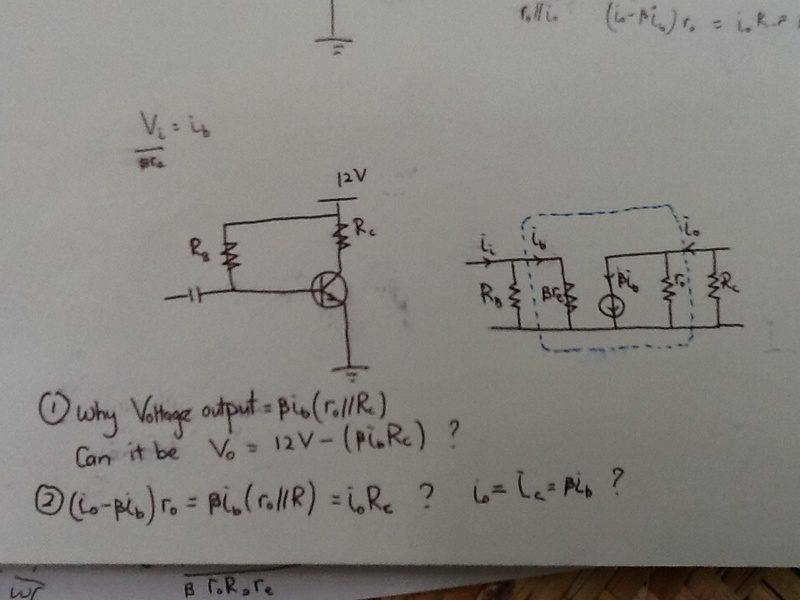 r₀//i₀ (i₀-βi_b)r₀ = i₀R
V_i = i_b
βr_e
12V
R_B
R_c
i_i
i_b
i_o
R_B
βr_e
βi_b
r_o
R_c
① Why Voltage output = βi_b(r₀//R_c)
Can it be V_o = 12V - (βi_bR_c) ?
② (i_o-βi_b)r_o = βi_b(r_o//R) = i_oR_c ? i_o = i_c = βi_b ?
β r_o R_B r_e